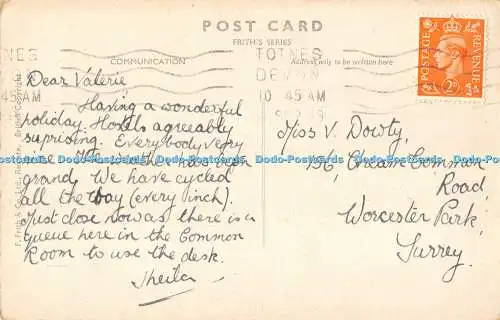 POST CARD
FRITH'S SERIES
COMMUNICATION
Address only to be written here
TOTNES
DEVON
10 45 AM
TNES
45 AM
POSTAGE
REVENUE
2D
Dear Valerie
Having a wonderful
holiday. Hostels agreeably
surprising. Everybody very
nice. The weather has been
grand. We have cycled
all the way (every inch).
Must close now as there is a
queue here in the Common
Room to use the desk.
Sheila
Miss V. Dowty,
156, Cheam Common
Road,
Worcester Park,
Surrey.
F. Frith & Co. Ltd., Reigate. English Copyright.
Da-Postcards Da-Postcards Da-Postcards Da-Postcards Da-Postcards